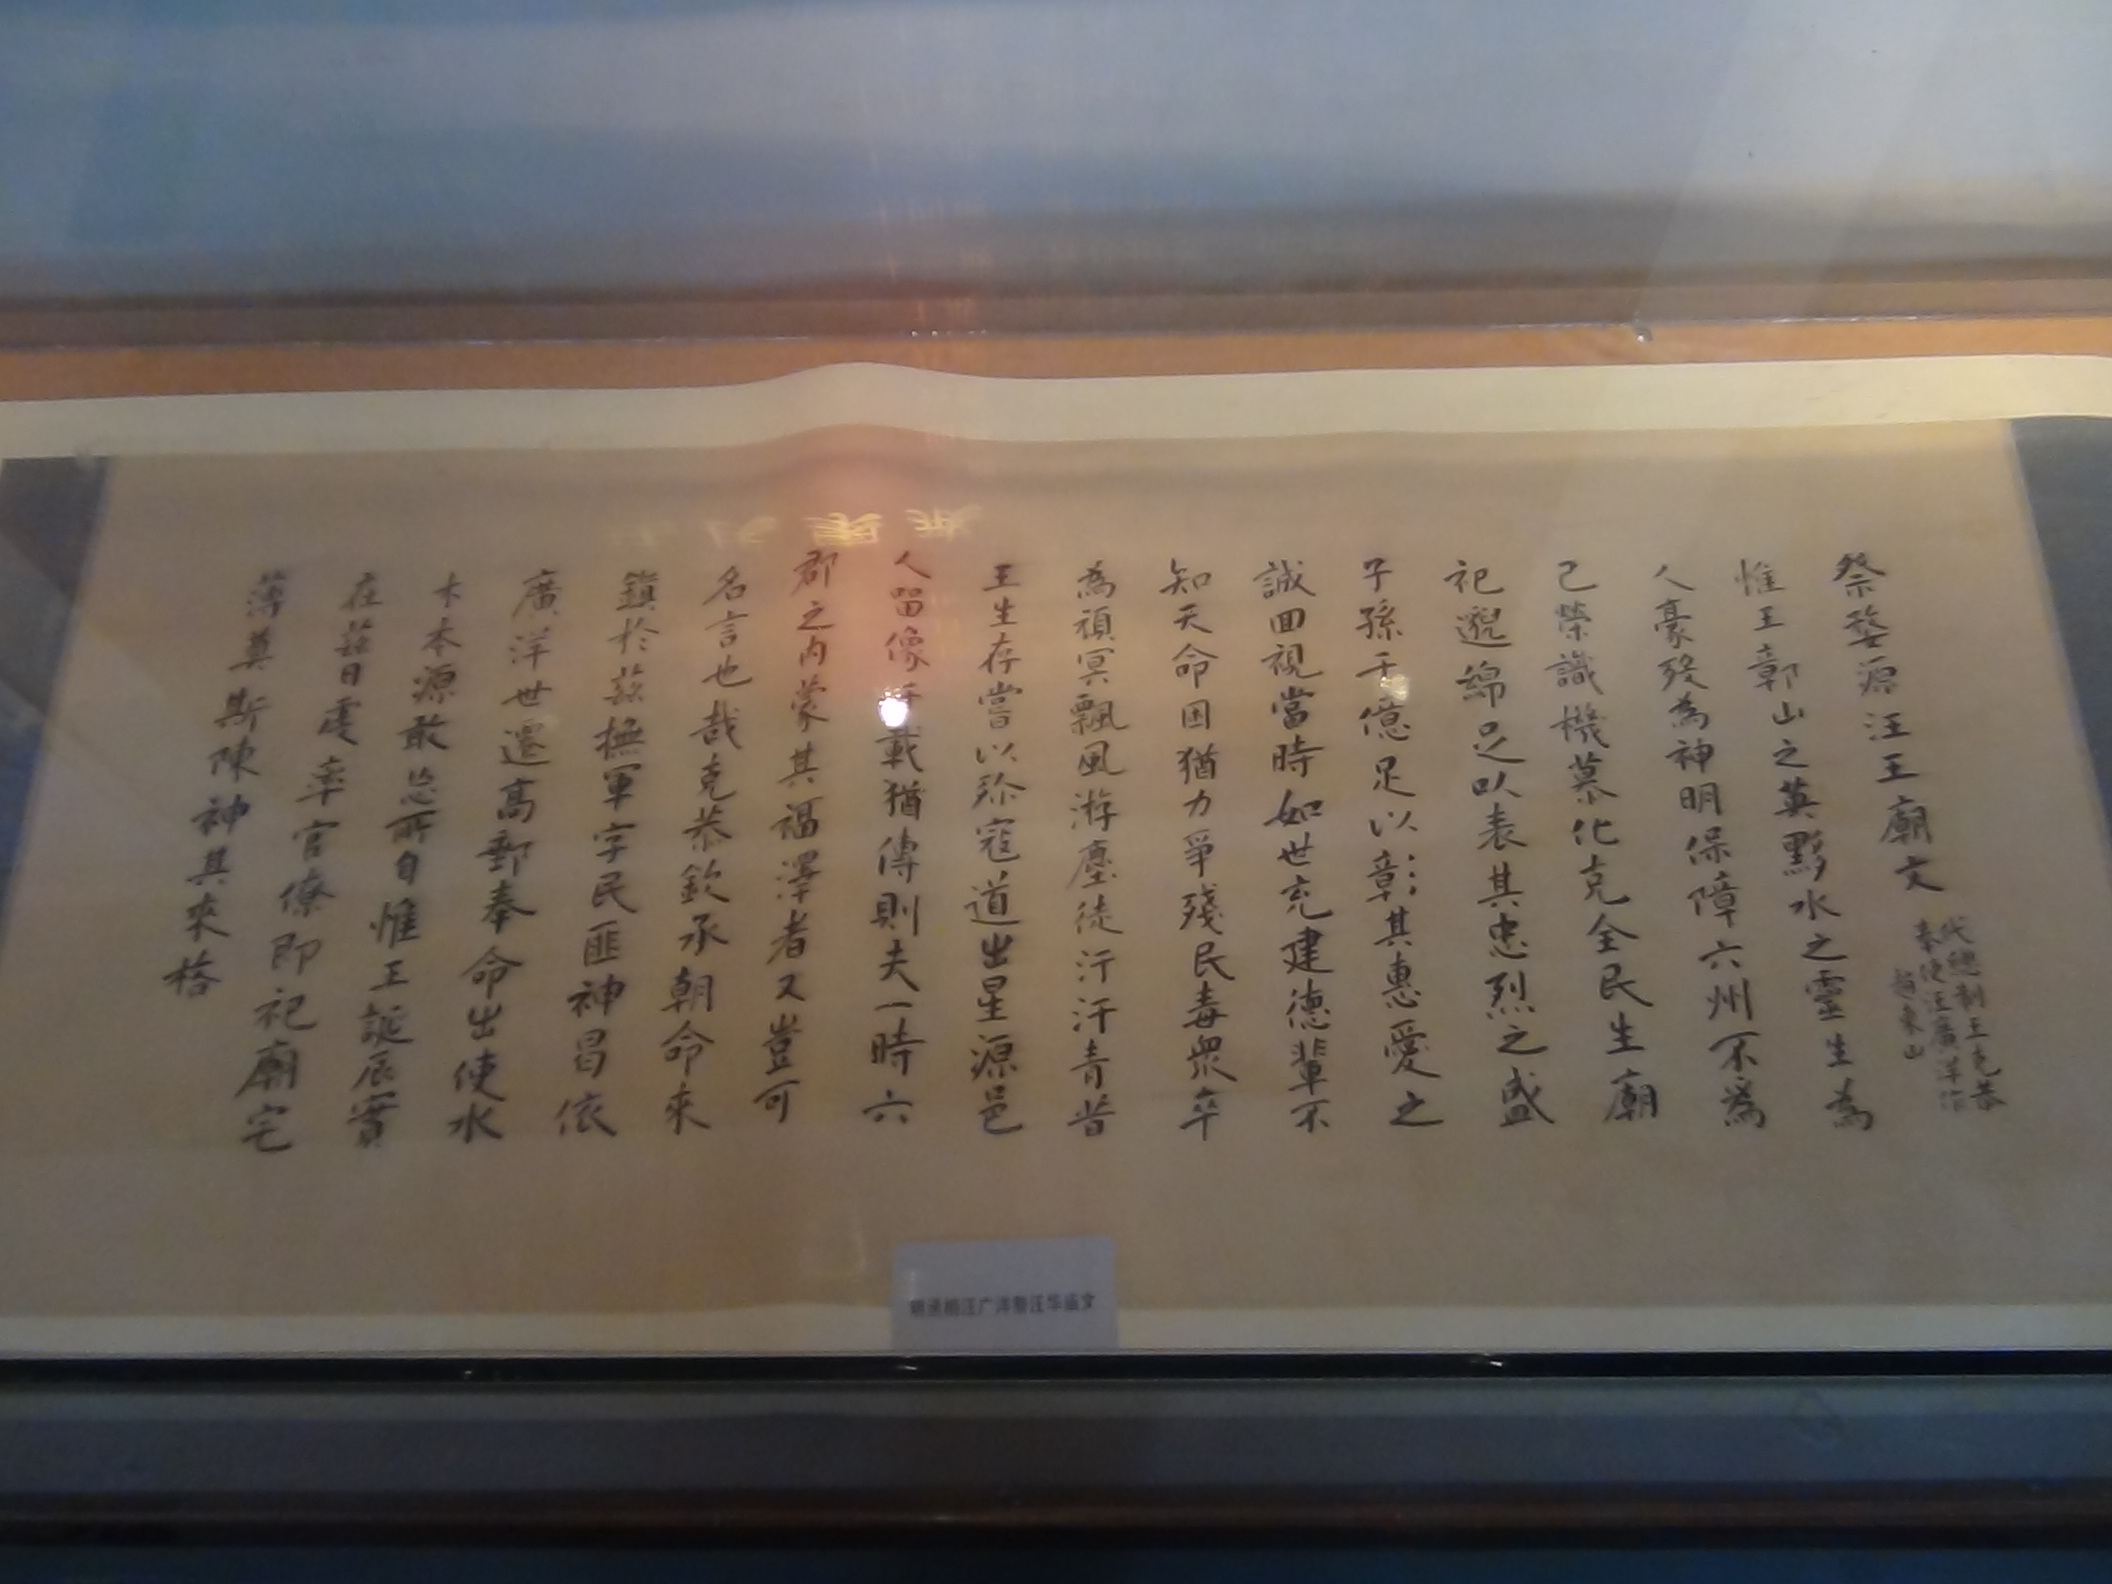 祭婺源汪王廟文
代總制王克恭
奉使汪廣洋作
趙東山
惟王鄣山之英黟水之靈生為
人豪歿為神明保障六州不為
己榮識機慕化克全民生廟
祀邈綿足以表其忠烈之盛
子孫千億足以彰:其惠愛之
誠回視當時如世充建德輩不
知天命困猶力爭殘民毒眾卒
為頑冥飄風游塵徒汙汗青昔
王生存嘗以殄寇道出星源邑
人留像千載猶傳則夫一時六
郡之內蒙其福澤者又豈可
名言也哉克恭欽承朝命來
鎮於茲撫軍字民匪神曷依
廣洋世遷高郵奉命出使水
木本源敢忘所自惟王誕辰實
在茲日虔率官僚即祀廟宅
薄奠斯陳神其來格
明丞相汪广洋祭汪华庙文